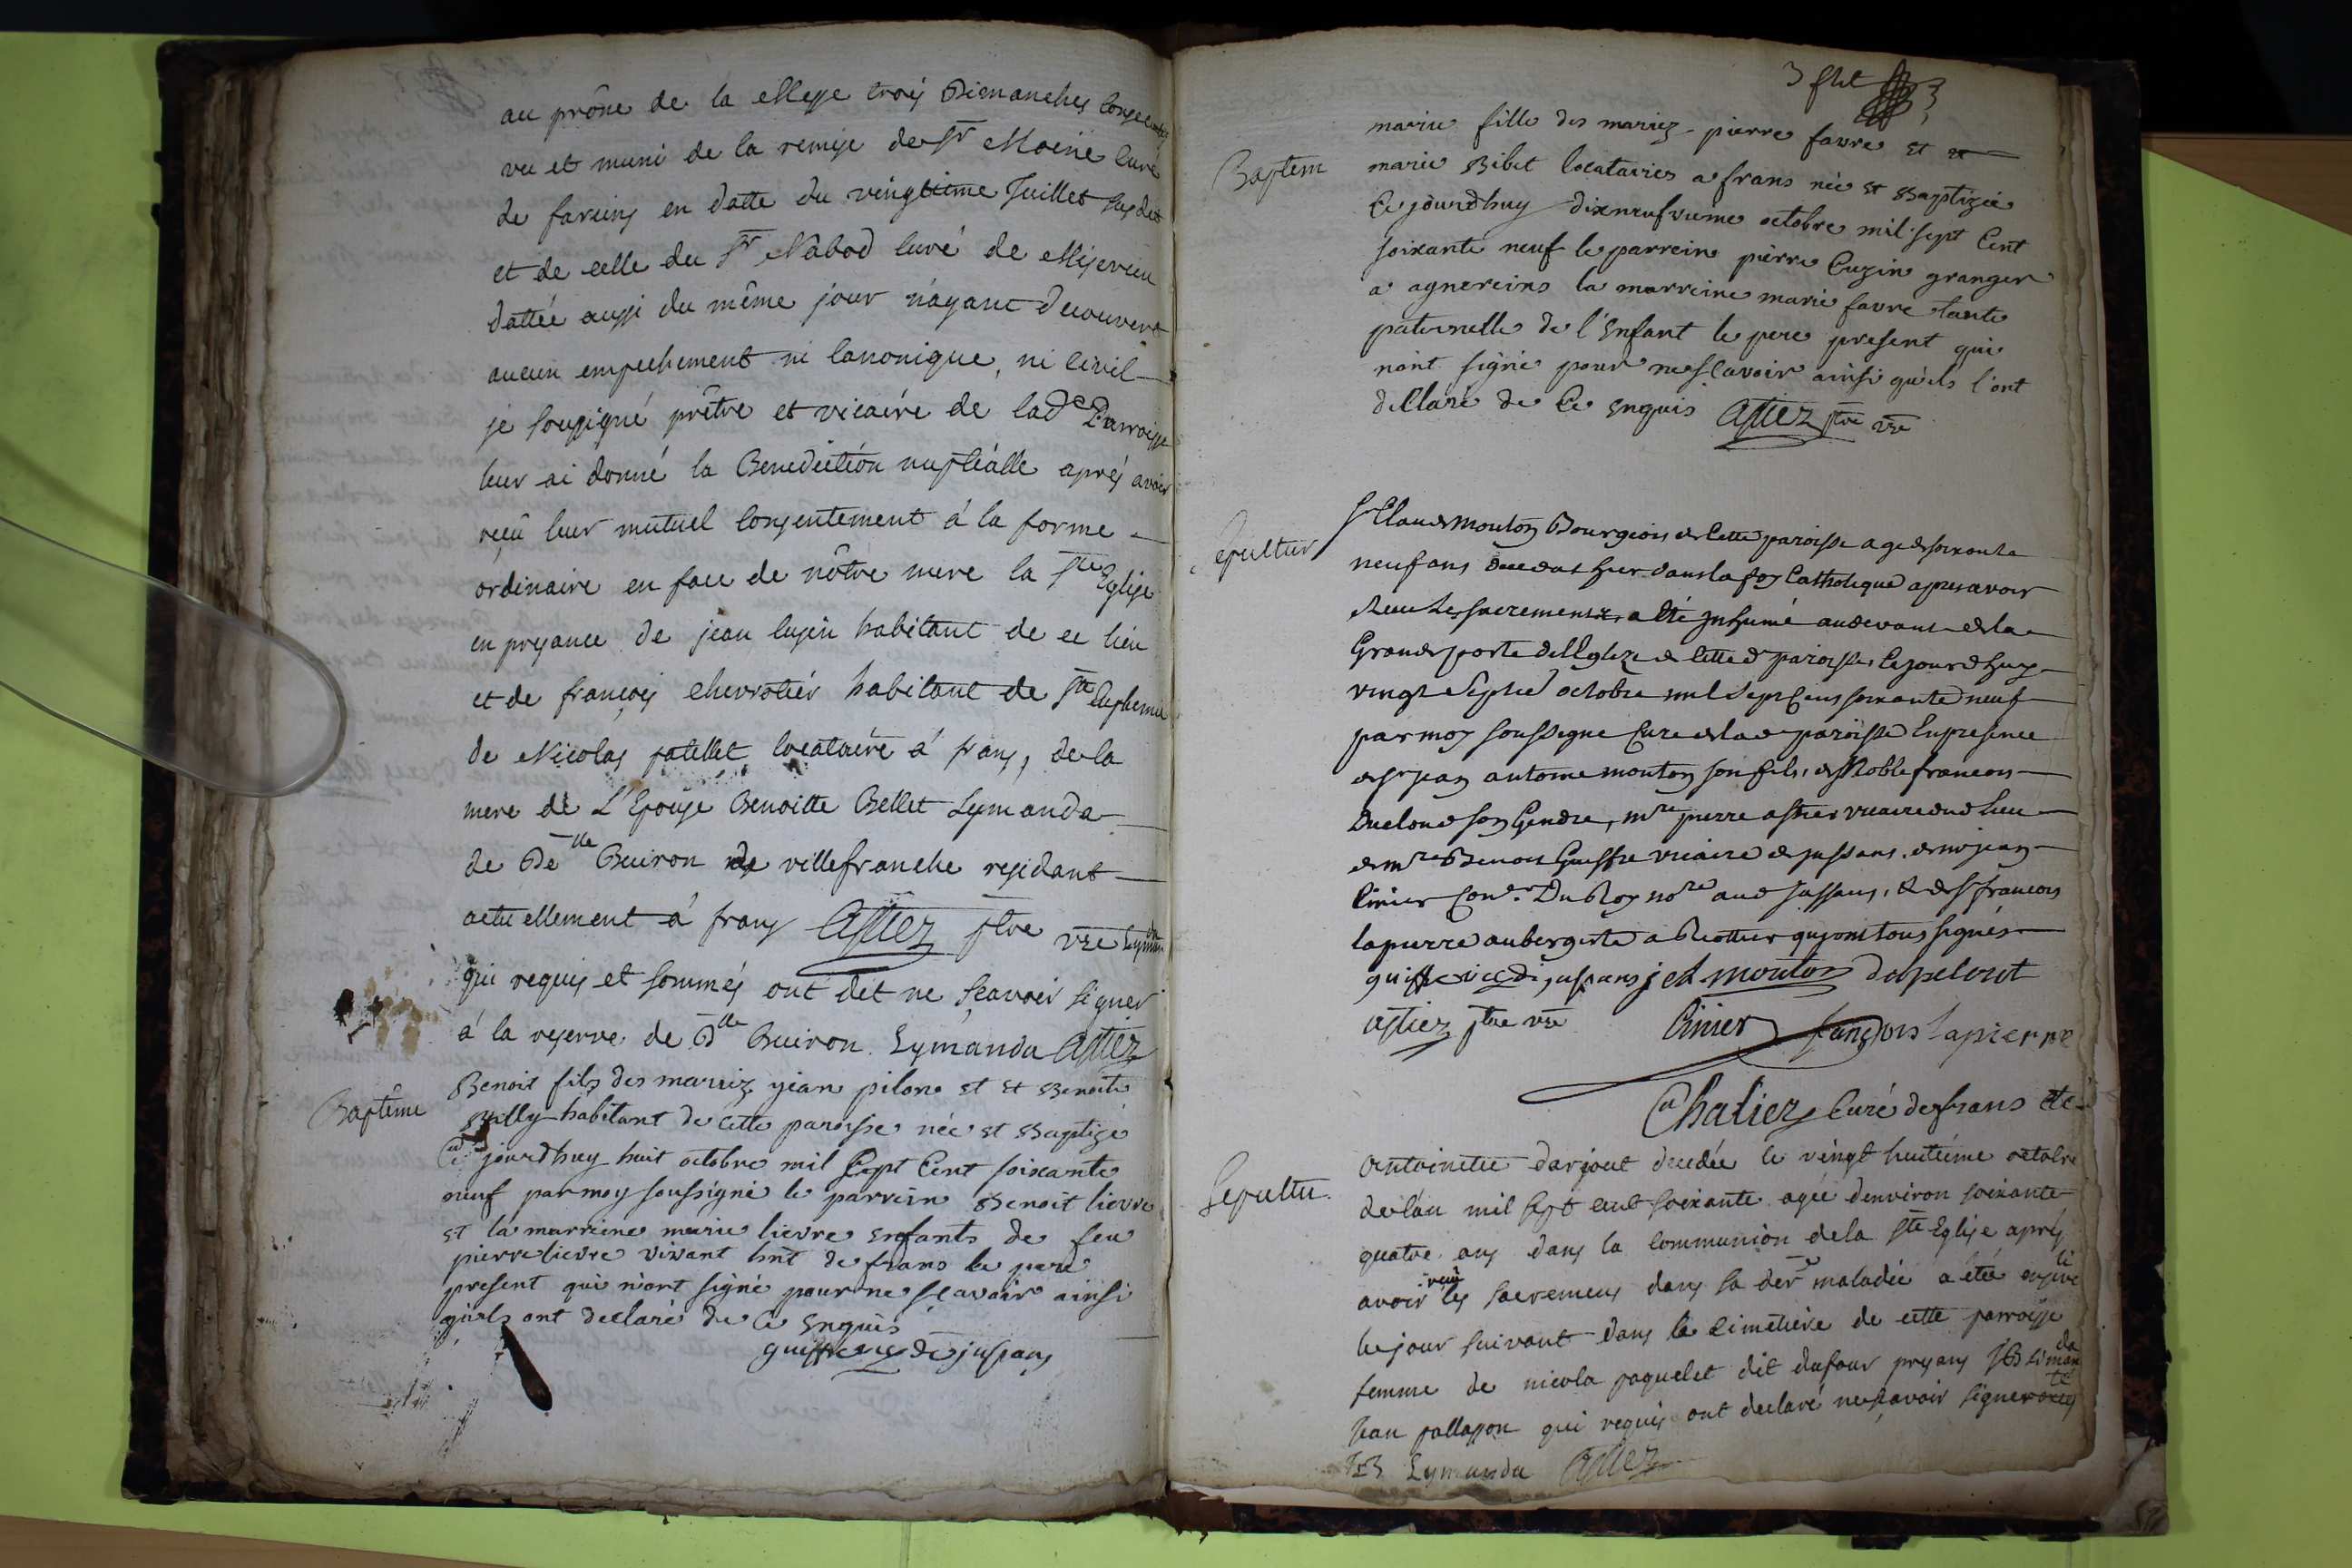 au prône de la Messe trois Dimanches
vu et muni de la remise de Sr Moine Curé
de fareins en datte du vingtième Juillet susdit
et de celle du Sr Nabod Curé de Miserieu
dattée aussi du même jour n'ayant decouvert
aucun empechement ni Canonique, ni Civil
je soussigné prêtre et vicaire de lade Parroisse
leur ai donné la Benediction nuptialle aprés avoir
reçu leur mutuel Consentement á la forme
ordinaire en face de nôtre mere la Ste Eglise
en presance de jean habitant de ce lieu
et de françois chevrotiér habitant de Ste Euphemie
de Nicolas locataire á frans, de la
mere de L'Epouse Benoitte Bellet Lymanda
de Delle Buiron de villefranche residant
actuellement á frans Astiez ptre vre
qui requis et sommés ont dit ne sçavoir signer
á la reserve de Dlle Buiron. Lymanda Astiez
Baptême
Benoit fils des marriez jean pilon et et Benoite
habitant de cette paroisse née et Baptizé
Ce jourdhuy huit octobre mil sept Cent soixante
neuf par moy soussigné le parrein Benoit lievre
et la marreine marie lievre enfants de feu
pierre lievre vivant hnt de frans le pere
present qui n'ont signé pour ne sçavoir ainsi
qu'ils ont declaré de ce enquis
guiffre vic de jussans
3 flet
Baptem
marie fille des marriez pierre favre et et
marie Bibet locataires a frans née et Baptizée
Ce jourdhuy dixneufvieme octobre mil sept Cent
soixante neuf le parrein pierre Cuzin granger
a agnereins la marreine marie favre tante
paternelle de l'enfant le pere present qui
n'ont signé pour ne sçavoir ainsi qu'ils l'ont
declaré de Ce enquis Astiez ptre vre
Sepultur
Sr Claude mouton Bourgeois de Cette paroisse age de soixante
neuf ans decedat hier dans la foy Catholique apres avoir
Receu les sacrements, a été Inhumé audevant de la
Grande porte de l'Eglize de Cette d paroisse, Cejourdhuy
vingt septie octobre mil sept Cens soixante neuf
par moy soussigné Curé de lad paroisse En presence
de Sr jean antoine mouton son fils, de Noble francois
son Gendre, mre pierre astier vicaire dud lieu
de mre Benoit Guiffre vicaire de jussans, de mr jean
Cinier Du Roy nore aud jussans, & de Sr francois
lapierre aubergiste a Riottier qui ont tous signés
guiffre vic de jussans j A mouton dapelout
Astiez ptre vre Cinier françois lapierre
Chatiez Curé de frans
Sepultu
Antoinette darjout decedée le vingt huitiéme octobre
de l'an mil sept cent soixante agée d'environ soixante
quatre ans dans la Communion de la Ste Eglise aprés
avoir reçu les sacremens dans sa dere maladie a été
le jour suivant dans le Cimetière de cette parroisse
femme de nicola paquelet dit dufour presans JB Limanda
Jean pallasson qui requis ont declaré ne sçavoir signer
JB Lymanda Astiez